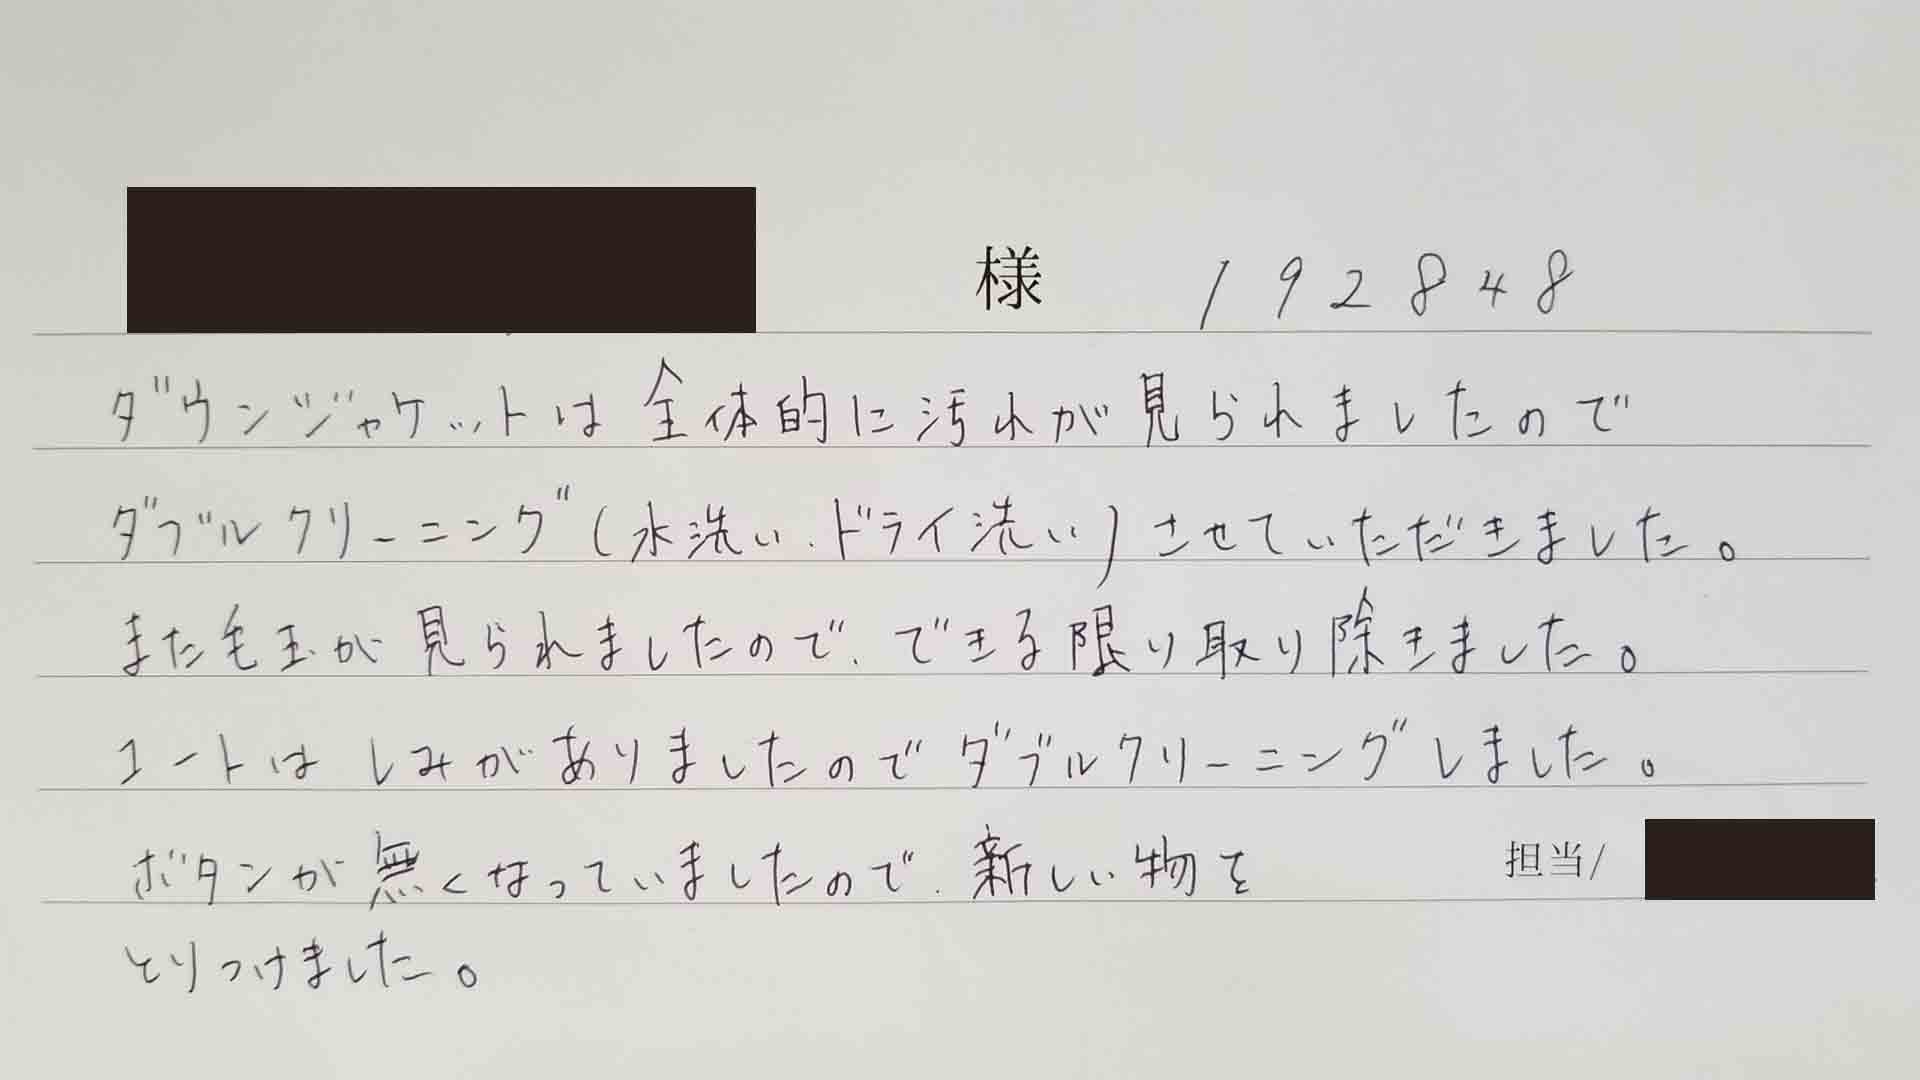 様 192848
ダウンジャケットは全体的に汚れが見られましたので
ダブルクリーニング(水洗い、ドライ洗い)させていただきました。
また毛玉が見られましたので、できる限り取り除きました。
コートはしみがありましたのでダブルクリーニングしました。
ボタンが無くなっていましたので、新しい物を 担当/
とりつけました。